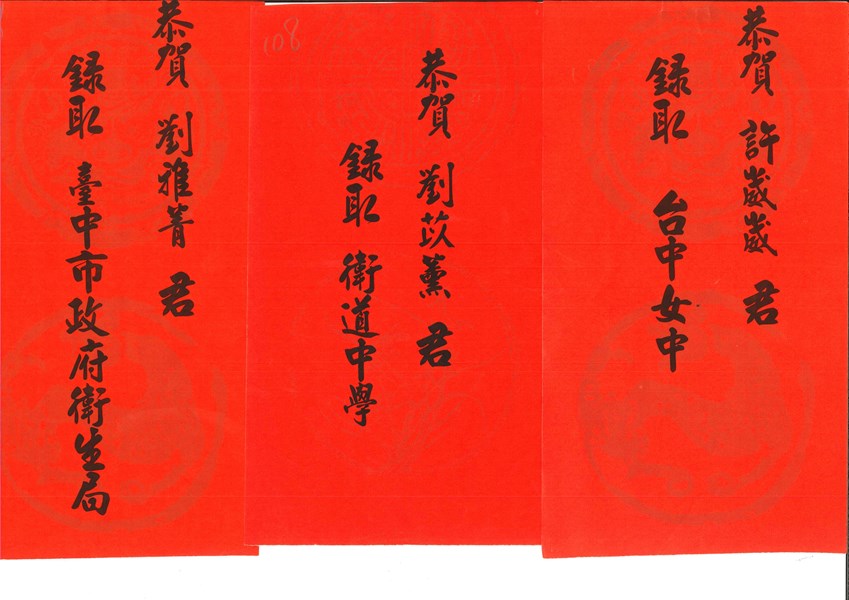 恭賀 許崴崴 君
錄取 台中女中
108
恭賀 劉苡薰 君
錄取 衛道中學
恭賀 劉雅菁 君
錄取 臺中市政府衛生局